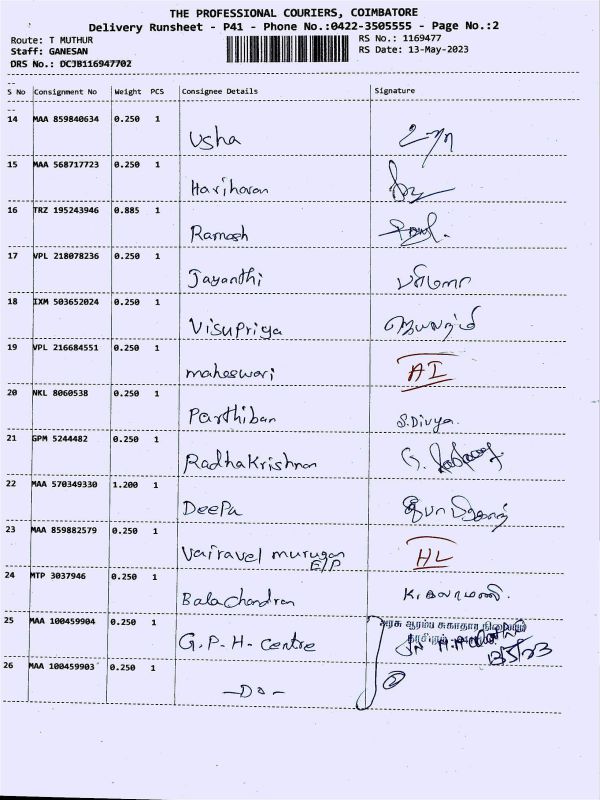 THE PROFESSIONAL COURIERS, COIMBATORE
Delivery Runsheet - P41 - Phone No.:0422-3505555 - Page No.:2
Route: T MUTHUR RS No.: 1169477
Staff: GANESAN RS Date: 13-May-2023
DRS No.: DCJB116947702
S No Consignment No Weight PCS Consignee Details Signature
14 MAA 859840634 0.250 1 Usha உஷா
15 MAA 568717723 0.250 1 Hariharan
16 TRZ 195243946 0.885 1 Ramesh
17 VPL 218078236 0.250 1 Jayanthi
18 IXM 503652024 0.250 1 Visupriya
19 VPL 216684551 0.250 1 maheswari AI
20 NKL 8060538 0.250 1 Parthiban S.Divya.
21 GPM 5244482 0.250 1 Radhakrishnan
22 MAA 570349330 1.200 1 Deepa தீபா
23 MAA 859882579 0.250 1 Vairavel murugan HL
E/P
24 MTP 3037946 0.250 1 Balachandran K. கலாமணி.
25 MAA 100459904 0.250 1 G.P.H-Centre அரசு ஆரம்ப சுகாதார நிலையம்
13/5/23
26 MAA 100459903 0.250 1 -Do-